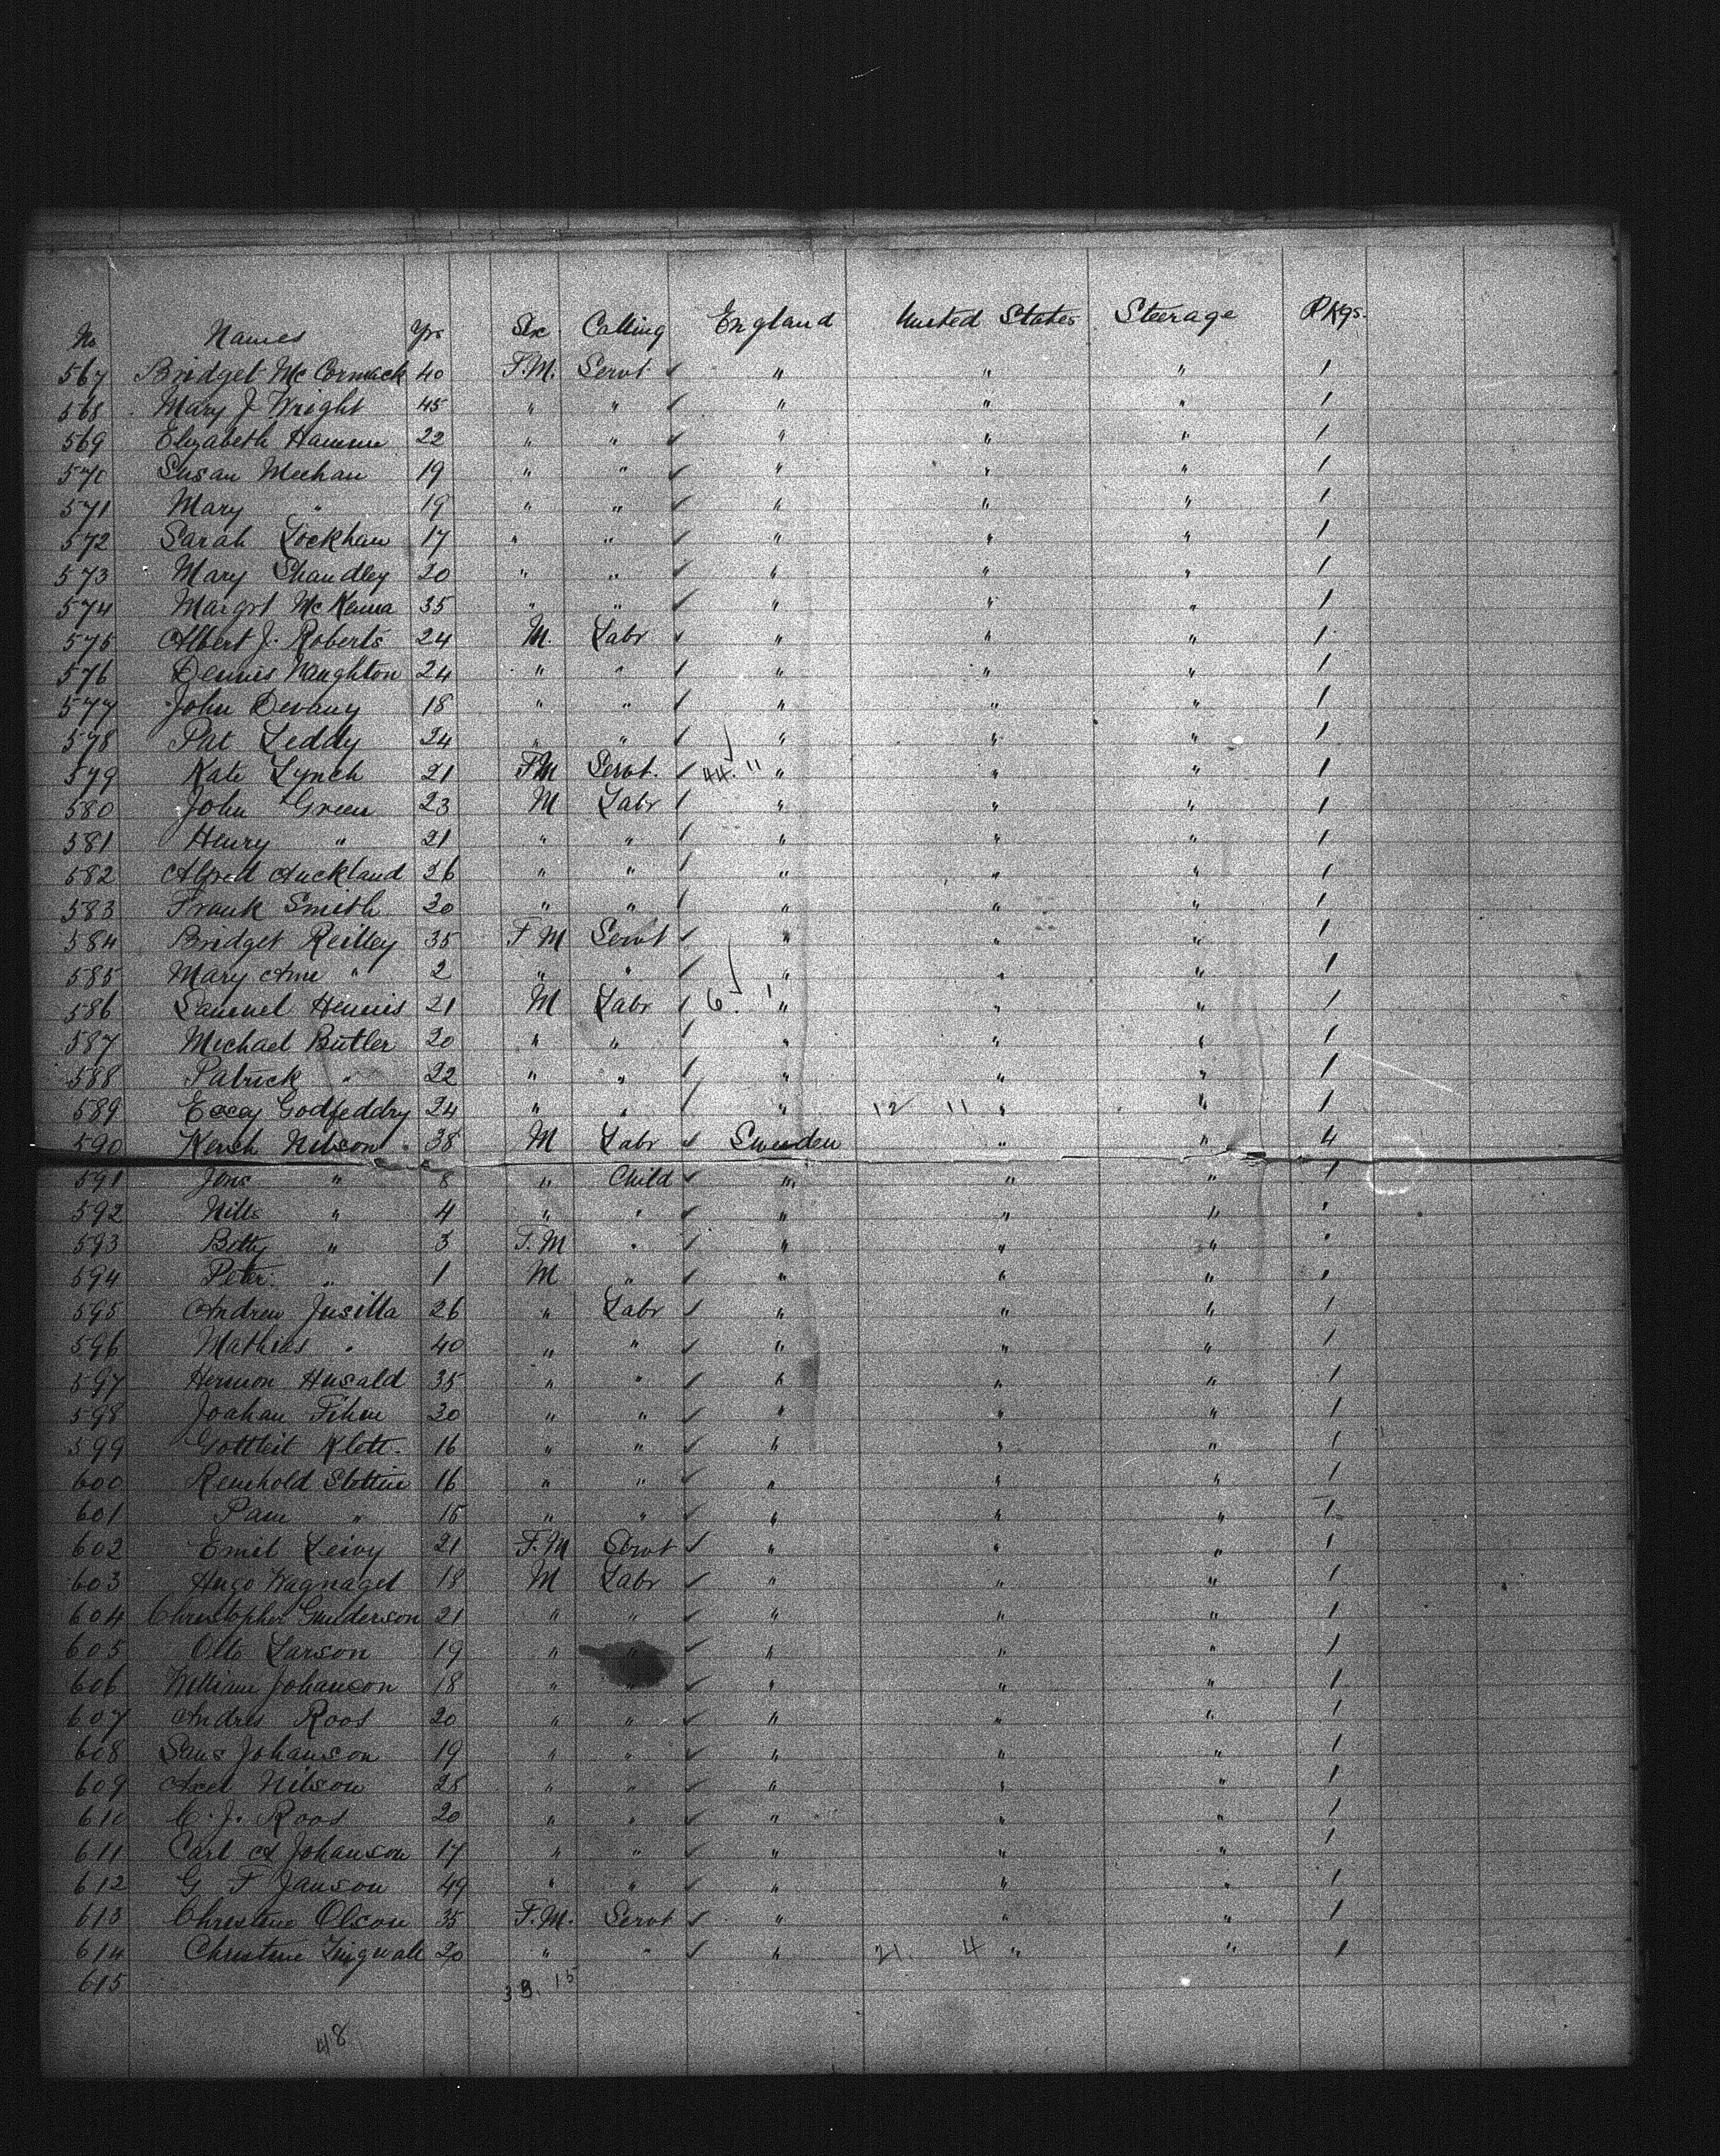 No Names Yrs Sex Calling England United States Steerage Pkgs.
567 Bridget McCormack 40 F.M. Servt ✓ " " " 1
568 Mary J Wright 45 " " ✓ " " " 1
569 Elizabeth 22 " " ✓ " " " 1
570 Susan Meehan 19 " " ✓ " " " 1
571 Mary " 19 " " ✓ " " " 1
572 Sarah 17 " " ✓ " " " 1
573 Mary Shandley 20 " " ✓ " " " 1
574 Margrt McKenna 35 " " ✓ " " " 1
575 Albert J. Roberts 24 M. Labr ✓ " " " 1
576 Dennis Naughton 24 " " / " " " 1
577 John Devany 18 " " / " " " 1
578 Pat Leddy 24 " " / " " " 1
579 Kate Lynch 21 FM Servt. / 44. " " " " 1
580 John Green 23 M Labr / " " " 1
581 Henry " 21 " " / " " " 1
582 Alfred Auckland 26 " " / " " " 1
583 Frank Smith 20 " " / " " " 1
584 Bridget Reilley 35 F M Servt ✓ " " " 1
585 Mary Ann " 2 " " / " " " 1
586 Samuel Hennis 21 M Labr / 6. 1 " " " 1
587 Michael Butler 20 " " / " " " 1
588 Patrick " 22 " " / " " " 1
589 Godfeddry 24 " " / " 12 11 " " 1
590 Nilson 38 M Labr ✓ Sweeden " " 4
591 Jons " 8 " Child ✓ " " " 1
592 Nills " 4 " " ✓ " " " "
593 Betty " 3 F.M " ✓ " " " "
594 Peter. " 1 M " ✓ " " " "
595 Andrew Jusilla 26 " Labr ✓ " " " 1
596 Mathias " 40 " " ✓ " " " 1
597 Hermon Husald 35 " " ✓ " " " 1
598 Joahan 20 " " ✓ " " " 1
599 Gottleit Klott. 16 " " ✓ " " " 1
600 Reinhold Stettin 16 " " ✓ " " " 1
601 " 15 " " ✓ " " " 1
602 Emil Leivy 21 F.M Servt ✓ " " " 1
603 Hugo Wagnagel 18 M Labr ✓ " " " 1
604 Christopher Gunderson 21 " " ✓ " " " 1
605 Otto Larson 19 " " ✓ " " " 1
606 William Johanson 18 " " ✓ " " " 1
607 Andres Roos 20 " " ✓ " " " 1
608 Johanson 19 " " ✓ " " " 1
609 Axel Nilson 25 " " ✓ " " " 1
610 C. J. Roos 20 " " ✓ " " " 1
611 Carl A Johanson 17 " " ✓ " " " 1
612 G F Janson 49 " " ✓ " " " 1
613 Christine Olson 35 F.M. Servt ✓ " " " 1
614 Christine 20 " " ✓ " 21. 4 " " 1
615
33. 15
48